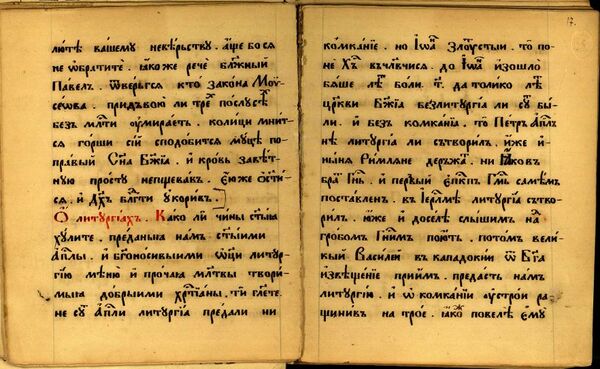 лютѣ вашему невѣрьству. аще бо ся
не ѡбратите. ꙗкоже рече бл҃жныи
Павелъ. ѿвергъся кто закона Моѵ̈-
сеѡва. придъвою ли трех послусѣ
безъ млⷭ҇ти оумираетъ. колици мнит-
ся горши сїй сподобится муцѣ по-
правый Сн҃а Бж҃їа. и кровь завѣт-
ную просту непщевавъ. Ею же ѡст҃и-
ся. и Дх҃ъ блгⷣти укоривъ.
Ѽ литургїахъ. Како ли чины ст҃ыѧ
хулите. преданыѧ намъ ст҃ыими
Апⷭ҇лы. и бг҃оносивыими ѡц҃и литур-
гїю мѣню и прочаѧ млтⷡ҇ы твори-
мыѧ добрыими хрⷭ҇тїаны. ти гл҃ете
не сут Апⷭ҇ли литургїа предали ни
17.
комканїе. но Іѡанъ Златоустыи. то по-
не Хⷭ҇ъ въчл҃вчися. до Іѡана изошло
бяше лѣтъ боли. т҃. да толико лѣт
цр҃кви Бж҃їа безлитургїа ли сут бы-
ли. и безъ комканїа. то Петръ Апⷭ҇лъ
нѣ литургїа ли сътворилъ. ю̑же и
нынѧ Римляне держат. ни Іаковъ
братъ Гнⷭ҇ь. и первый Епⷭ҇кпъ Гмⷭ҇ь самѣмъ
поставленъ. въ Іерⷭ҇лмѣ литургїа сътво-
рилъ. юже и доселѣ слышимъ над
гробомъ Гнⷭ҇имъ поють. потомъ вели-
кый Василей въ кападокии ѿ Бг҃а
извѣщенїе приимъ. предасть намъ
литургїю. и ѡ комканїи оустрои ра-
щинивъ на трое. ꙗкоже повелѣ Ему